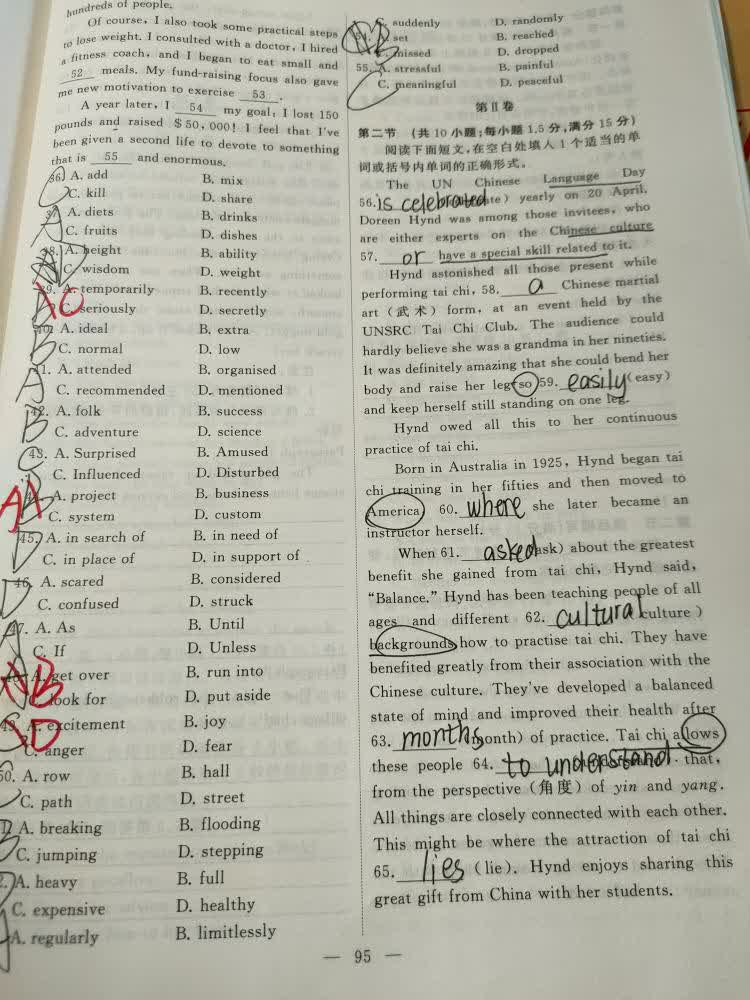 hundreds of people.
Of course, I also took some practical steps
to lose weight. I consulted with a doctor, I hired
a fitness coach, and I began to eat small and
52 meals. My fund-raising focus also gave
me new motivation to exercise 53 .
A year later, I 54 my goal: I lost 150
pounds and raised $50,000! I feel that I've
been given a second life to devote to something
that is 55 and enormous.
36. A. add B. mix
C. kill D. share
37. A. diets B. drinks
C. fruits D. dishes
38. A. height B. ability
C. wisdom D. weight
39. A. temporarily B. recently
C. seriously D. secretly
40. A. ideal B. extra
C. normal D. low
41. A. attended B. organised
C. recommended D. mentioned
42. A. folk B. success
C. adventure D. science
43. A. Surprised B. Amused
C. Influenced D. Disturbed
44. A. project B. business
C. system D. custom
45. A. in search of B. in need of
C. in place of D. in support of
46. A. scared B. considered
C. confused D. struck
47. A. As B. Until
C. If D. Unless
48. A. get over B. run into
C. look for D. put aside
49. A. excitement B. joy
C. anger D. fear
50. A. row B. hall
C. path D. street
A. breaking B. flooding
C. jumping D. stepping
A. heavy B. full
C. expensive D. healthy
A. regularly B. limitlessly
C. suddenly D. randomly
54. A. set B. reached
C. missed D. dropped
55. A. stressful B. painful
C. meaningful D. peaceful
第Ⅱ卷
第二节 (共10小题;每小题1.5分,满分15分)
阅读下面短文,在空白处填入1个适当的单
词或括号内单词的正确形式。
The UN Chinese Language Day
56. is celebrated yearly on 20 April.
Doreen Hynd was among those invitees, who
are either experts on the Chinese culture
57. or have a special skill related to it.
Hynd astonished all those present while
performing tai chi, 58. a Chinese martial
art (武术) form, at an event held by the
UNSRC Tai Chi Club. The audience could
hardly believe she was a grandma in her nineties.
It was definitely amazing that she could bend her
body and raise her leg so 59. easily (easy)
and keep herself still standing on one leg.
Hynd owed all this to her continuous
practice of tai chi.
Born in Australia in 1925, Hynd began tai
chi training in her fifties and then moved to
America 60. where she later became an
instructor herself.
When 61. asked (ask) about the greatest
benefit she gained from tai chi, Hynd said,
"Balance." Hynd has been teaching people of all
ages and different 62. cultural (culture)
backgrounds how to practise tai chi. They have
benefited greatly from their association with the
Chinese culture. They've developed a balanced
state of mind and improved their health after
63. months (month) of practice. Tai chi allows
these people 64. to understand that,
from the perspective (角度) of yin and yang.
All things are closely connected with each other.
This might be where the attraction of tai chi
65. lies (lie). Hynd enjoys sharing this
great gift from China with her students.
— 95 —